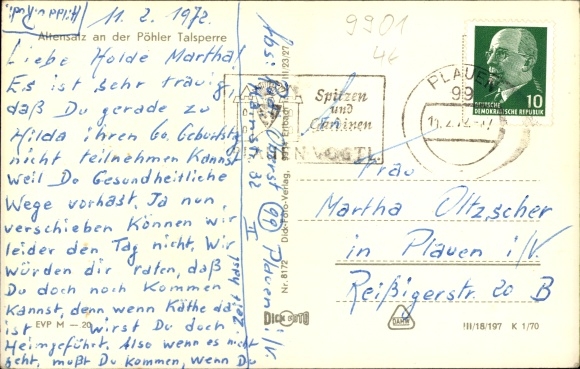 Hilda u. Rudi
11. 2. 1972.
Altensalz an der Pöhler Talsperre
Liebe Holde Martha!
Es ist sehr traurig,
daß Du gerade zu
Hilda ihren 60. Geburtstag
nicht teilnehmen kannst
weil Du Gesundheitliche
Wege vorhast. Ja nun,
verschieben Können wir
leider den Tag nicht. Wir
würden dir raten, daß
Du doch noch Kommen
Kannst, denn, wenn Käthe da
ist wirst Du doch
Heimgeführt. Also wenn es nicht
geht, mußt Du Kommen, wenn Du
Zeit hast
EVP M — 20
Abs: Rudi
99 Plauen i/V
32 II
III/23/27
Nr. 8172 Dick-Foto-Verlag, 9514 Erlbach i.
DICK FOTO
9901
4€
Spitzen
und
Gardinen
PLAUEN VOGTL.
PLAUEN
99
DEUTSCHE
DEMOKRATISCHE REPUBLIK
10
Frau
Martha Oltzscher
in Plauen i/V
Reißigerstr. 20 B
III/18/197 K 1/70